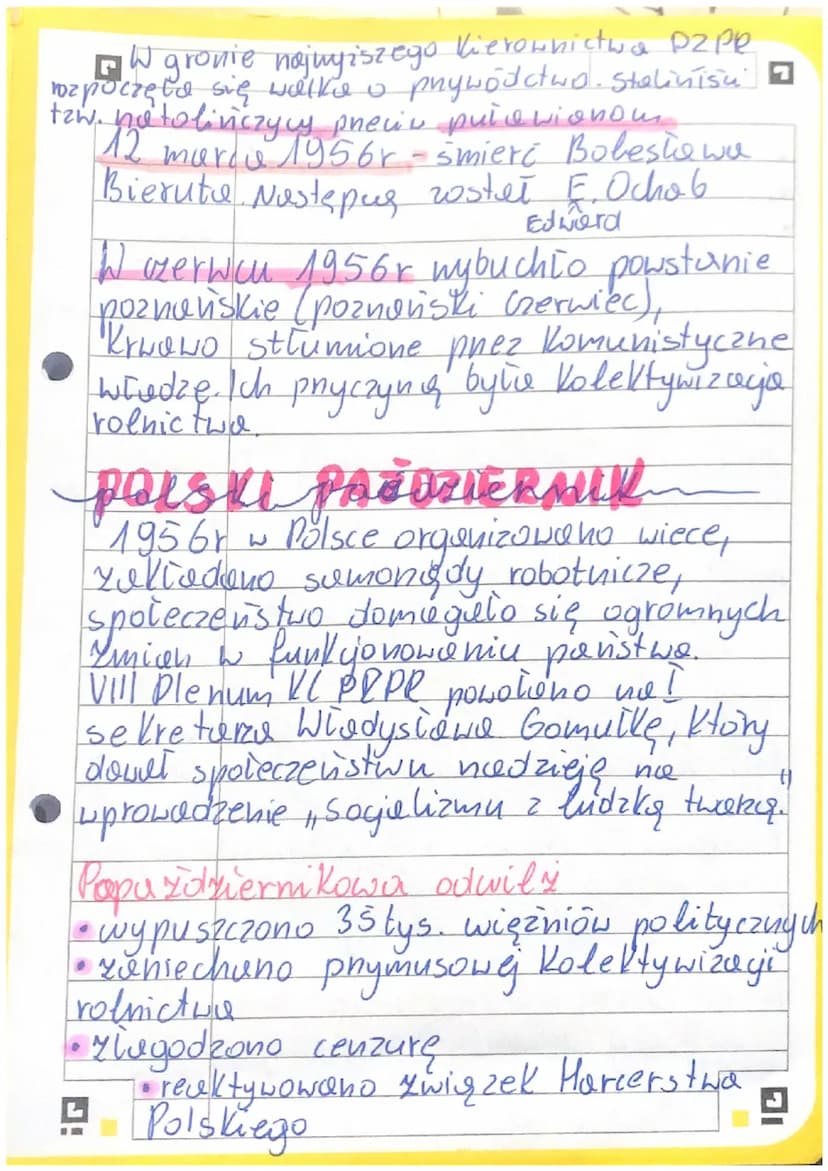 W gronie najwyższego kierownictwa PZPR
rozpoczęła się walka o przywództwo. Staliniści
tzw. natolińczycy przeciw puławianom
12 marca 1956r - śmierć Bolesława
Bieruta. Następcą został E. Ochab
Edward
W czerwcu 1956r wybuchło powstanie
poznańskie (poznański Czerwiec),
krwawo stłumione przez komunistyczne
władze. Ich przyczyną była kolektywizacja
rolnictwa.
POLSKI PAŹDZIERNIK
polski październik
1956r w Polsce organizowano wiece,
zakładano samorządy robotnicze,
społeczeństwo domagało się ogromnych
zmian w funkcjonowaniu państwa.
VIII Plenum KC PZPR powołano na I
sekretarza Władysława Gomułkę, który
dawał społeczeństwu nadzieję na
wprowadzenie „socjalizmu z ludzką twarzą."
Popaździernikowa odwilż
• wypuszczono 35 tys. więźniów politycznych
• zaniechano przymusowej kolektywizacji
rolnictwa
• złagodzono cenzurę
• reaktywowano Związek Harcerstwa
Polskiego